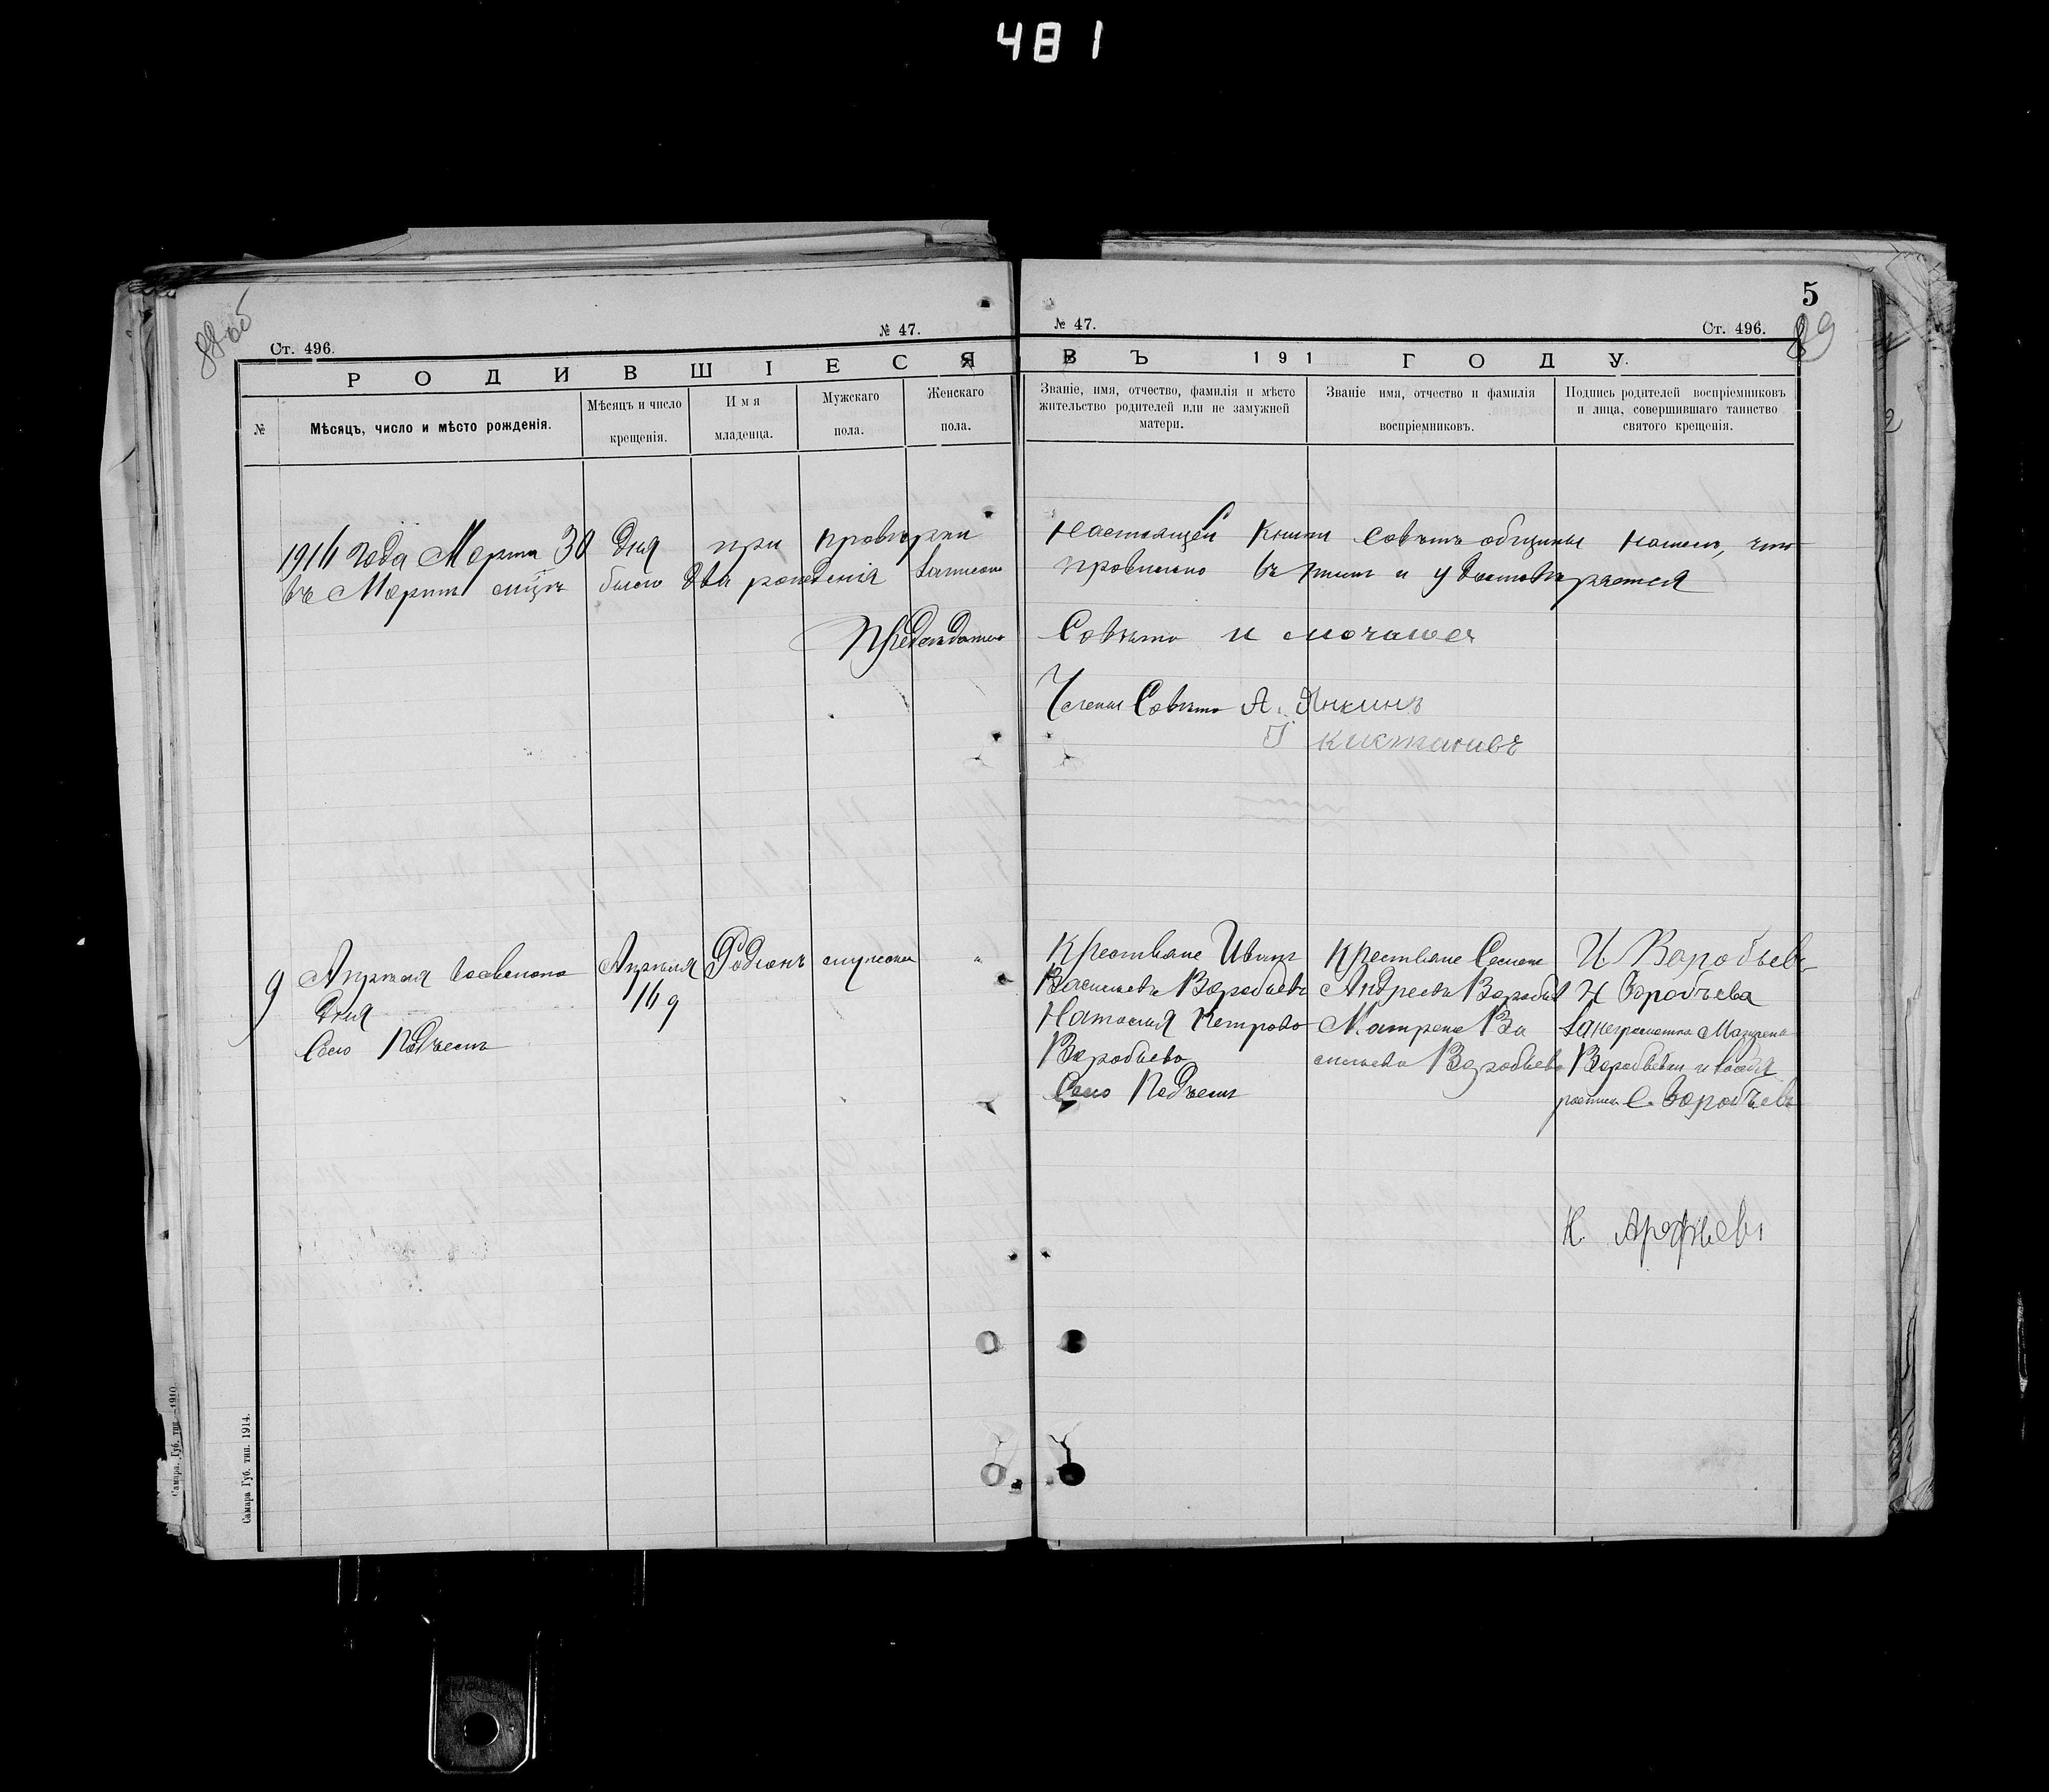 481
88 об
5
89
Ст. 496. № 47.
№ 47. Ст. 496.
РОДИВШІЕСЯ
ВЪ 191 ГОДУ.
№
Мѣсяцъ, число и мѣсто рожденія.
Мѣсяцъ и число крещенія.
Имя младенца.
Мужскаго пола.
Женскаго пола.
Званіе, имя, отчество, фамилія и мѣсто
жительство родителей или не замужней
матери.
Званіе имя, отчество и фамилія
воспріемниковъ.
Подпись родителей воспріемниковъ
и лица, совершившаго таинство
святого крещенія.
года Марта 30 дня при провѣрки настоящей книги совѣтъ общины нашелъ, что
въ Марта было два рожденія записано въ и
Предсѣдатель Совѣта
Члены Совѣта А. Янкинъ
9
Апрѣля восьмого
дня
Село Подъемъ
Апрѣля
9
Родіонъ
мужска
"
Крестьяне Иванъ
Васильевъ Воробьевъ
Наталия Петрова
Воробьева
Село Подъемъ
Крестьяне Семенъ
Андреевъ Воробьев
Матрена Ва
сильева Воробьева
И Воробьевъ
Н Воробьева
За неграмотна Матрена
Воробьеван и
С. Воробьевъ
К. Арефьевъ
Самара Губ. тип. 1914.
Самара. Губ. тип. 1910.